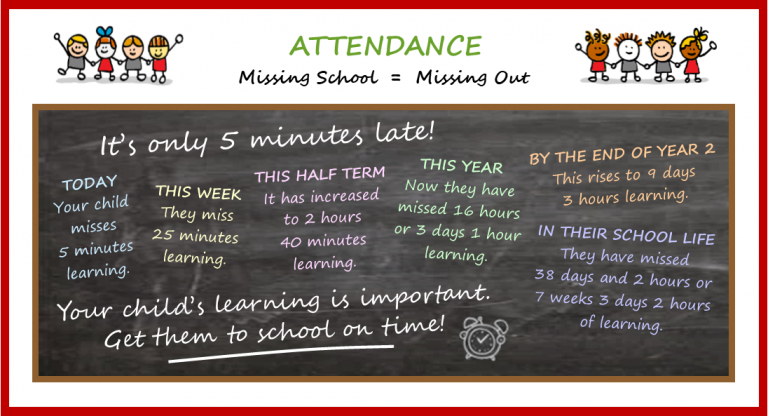 ATTENDANCE
Missing School = Missing Out
It's only 5 minutes late!
TODAY
Your child
misses
5 minutes
learning.
THIS WEEK
They miss
25 minutes
learning.
THIS HALF TERM
It has increased
to 2 hours
40 minutes
learning.
THIS YEAR
Now they have
missed 16 hours
or 3 days 1 hour
learning.
BY THE END OF YEAR 2
This rises to 9 days
3 hours learning.
IN THEIR SCHOOL LIFE
They have missed
38 days and 2 hours or
7 weeks 3 days 2 hours
of learning.
Your child's learning is important.
Get them to school on time!